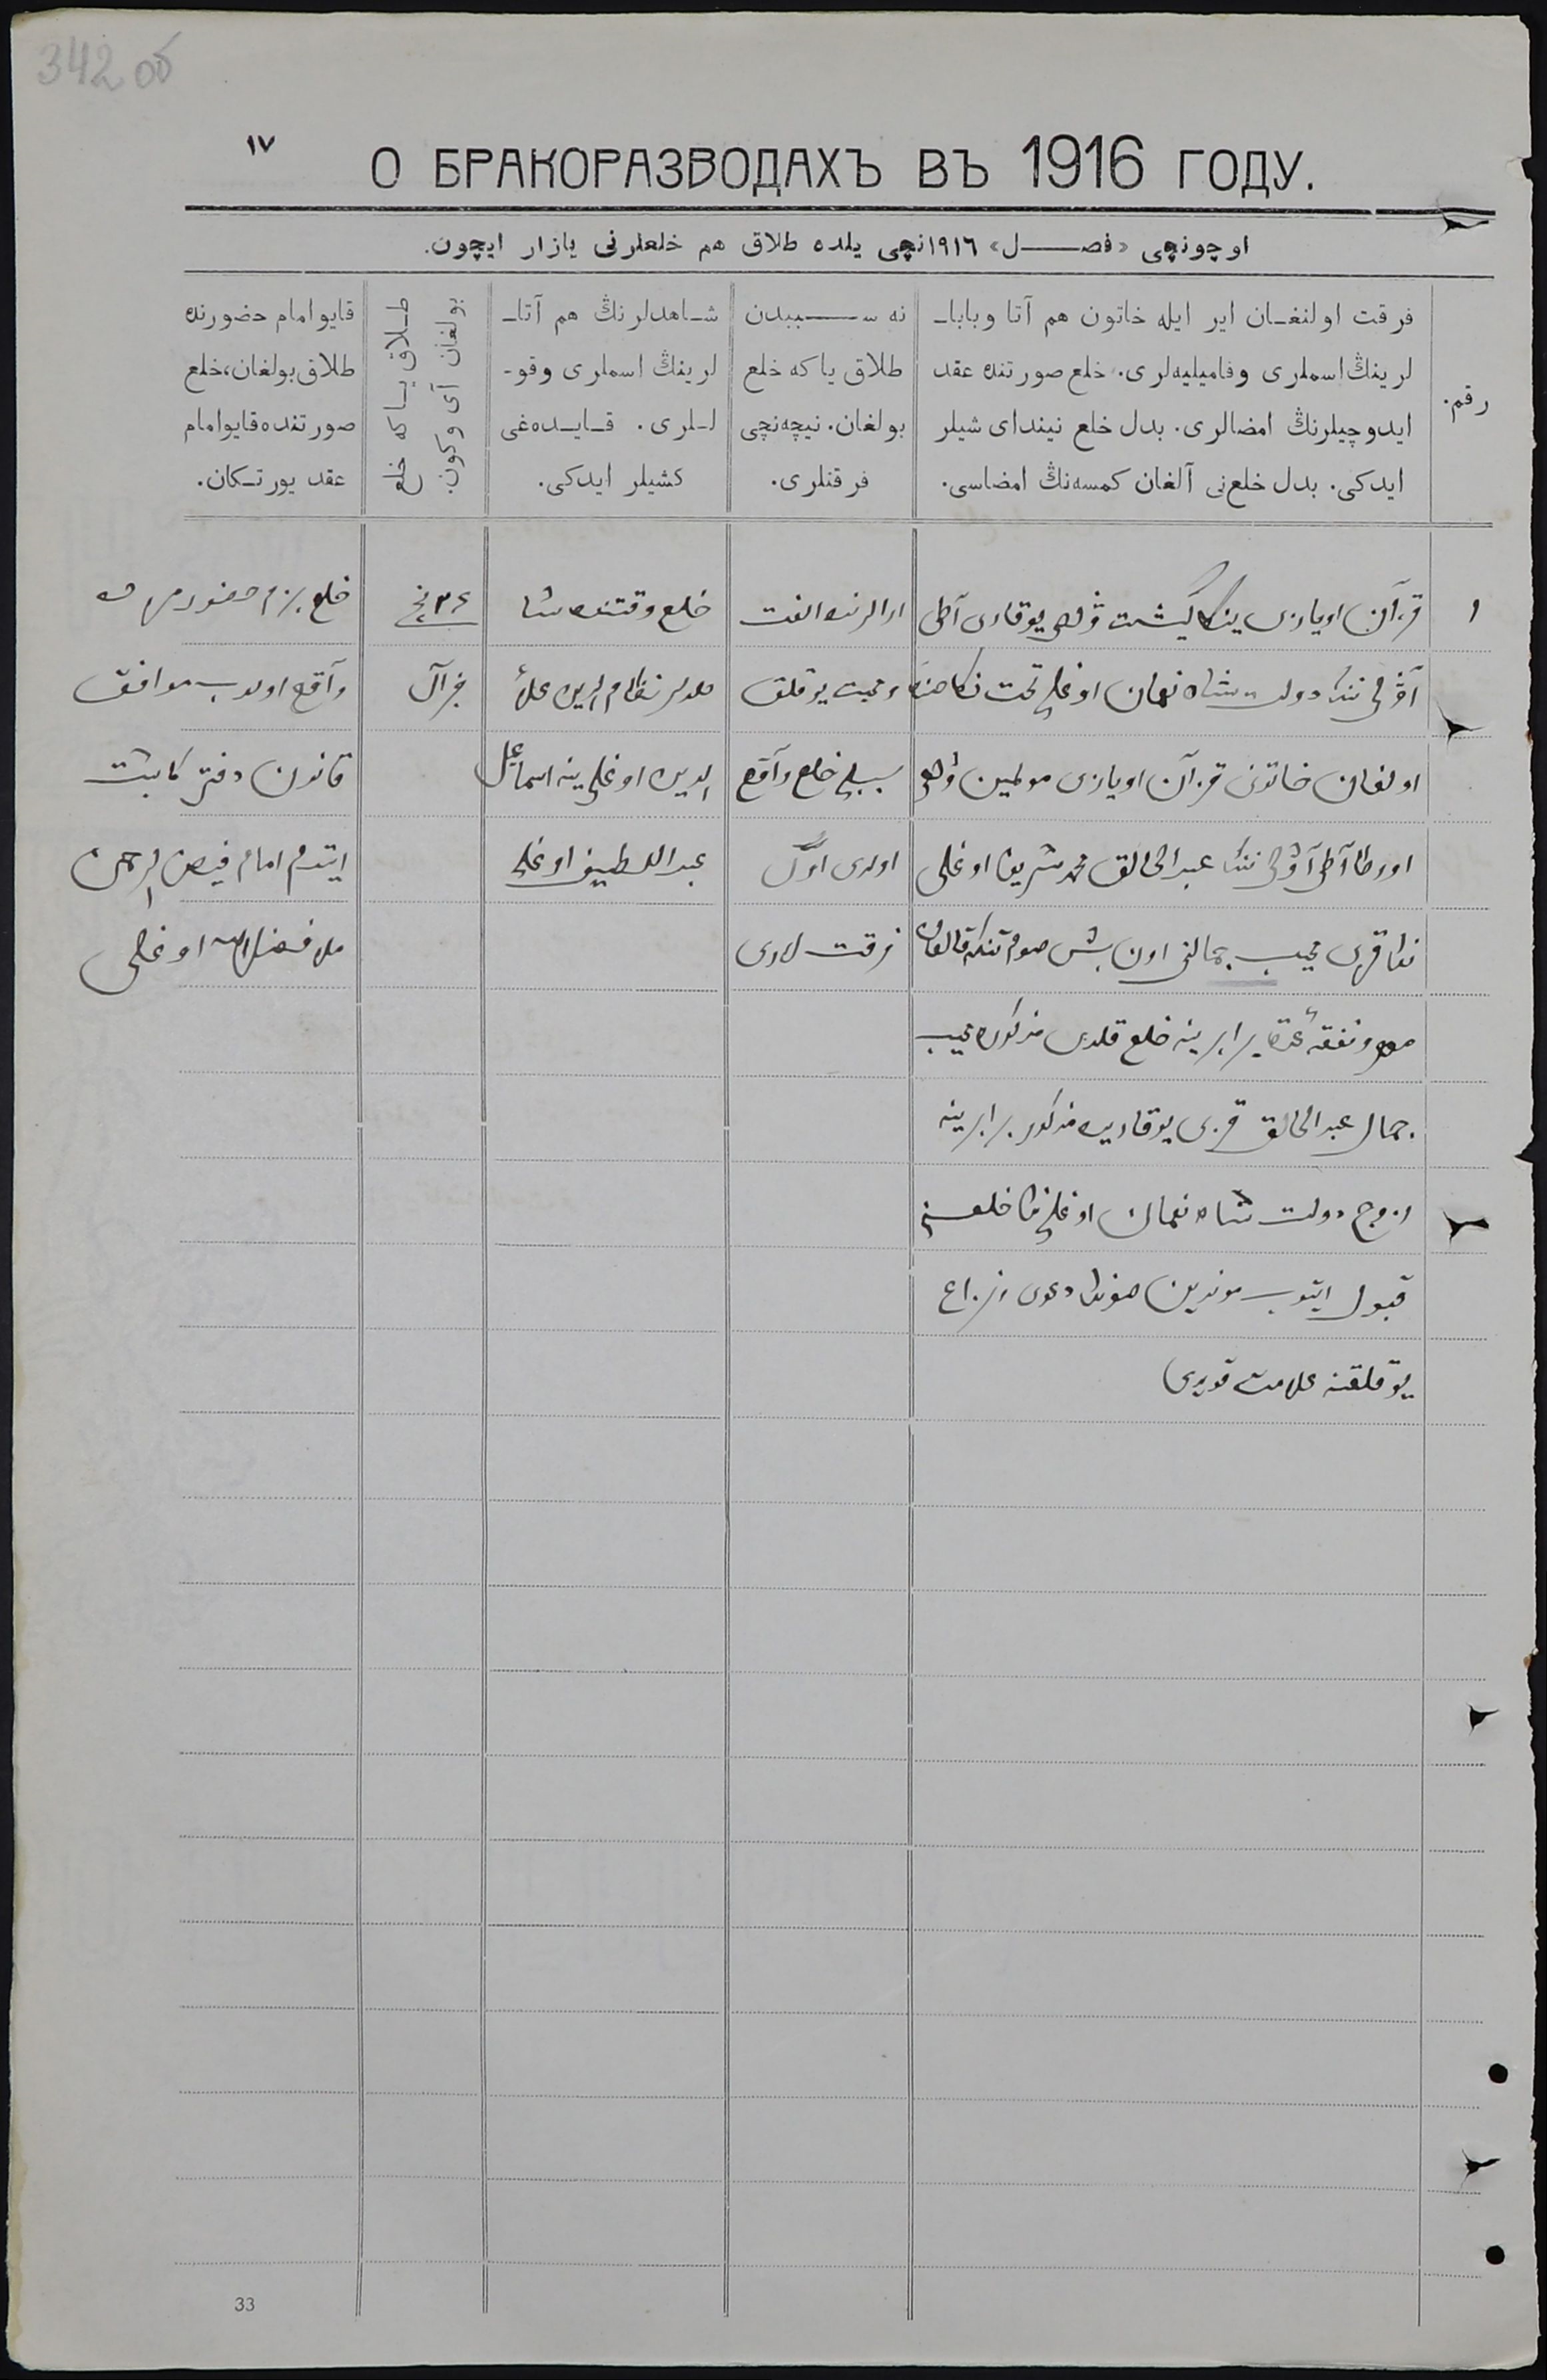 342 об
١٧
О БРАКОРАЗВОДАХЪ ВЪ 1916 ГОДУ.
اوچونچی «فصـــل» ١٩١٦نچی یلده طلاق هم خلعلرنی یازار ایچون.
رقم.
فرقت اولنغـان ایر ایله خاتون هم آتا وباباـ
لرینڭ اسملری وفامیلیه‌لری. خلع صورتنده عقد
ایدوچیلرنڭ امضالری. بدل خلع نیندای شیلر
ایدکی. بدل خلع‌نی آلغان کمسه‌نڭ امضاسی.
نه ســـببدن
طلاق یا که خلع
بولغان. نیچه‌نچی
فرقتلری.
شـاهدلرنڭ هم آتاـ
لرینڭ اسملری وقوـ
لـلری. قـایـده‌غی
کشیلر ایدکی.
طـلاق یـا که خلع
بولغان آی وکون.
قایو امام حضورنده
طلاق بولغان، خلع
صورتنده قایو امام
عقد یورتـکان.
١
قزآن اویازی ینکا کیشت ۇلصی یوقاری آطی
دولت شاه نعمان اوغلی تحت نکاحنده
اولغان خاتونی قزآن اویازی مولمین ۇلصی
اورطا آطی عبدالخالق محمد شریف اوغلی
قزی محب جمالنی اون بش صوم تنکه
مهر ونفقهٔ عدة برابرینه خلع قلدی مذکوره محب
جمال عبدالخالق قزی یوقاریده مذکور برابرینه
زوج دولت شاه نعمان اوغلی خلعنی
قبول ایتوب موندین صونک دعوی نزاع
یوقلقنه علامت قویدی
ارالرنده الفت
ومحبت یوقلق
سببلی خلع وآقع
اولدی اوّل
فرقت لاری
خلع وقتنده شا
هدلر نظام الدین علا
الدین اوغلی ینه اسماعیل
عبداللطیف اوغلی
خلع بزم حضورمزده
وآقع اولدب موافق
قانون دفترکا ثبت
ایتدم امام فیض الرحمن
ملا فضل الله اوغلی
33